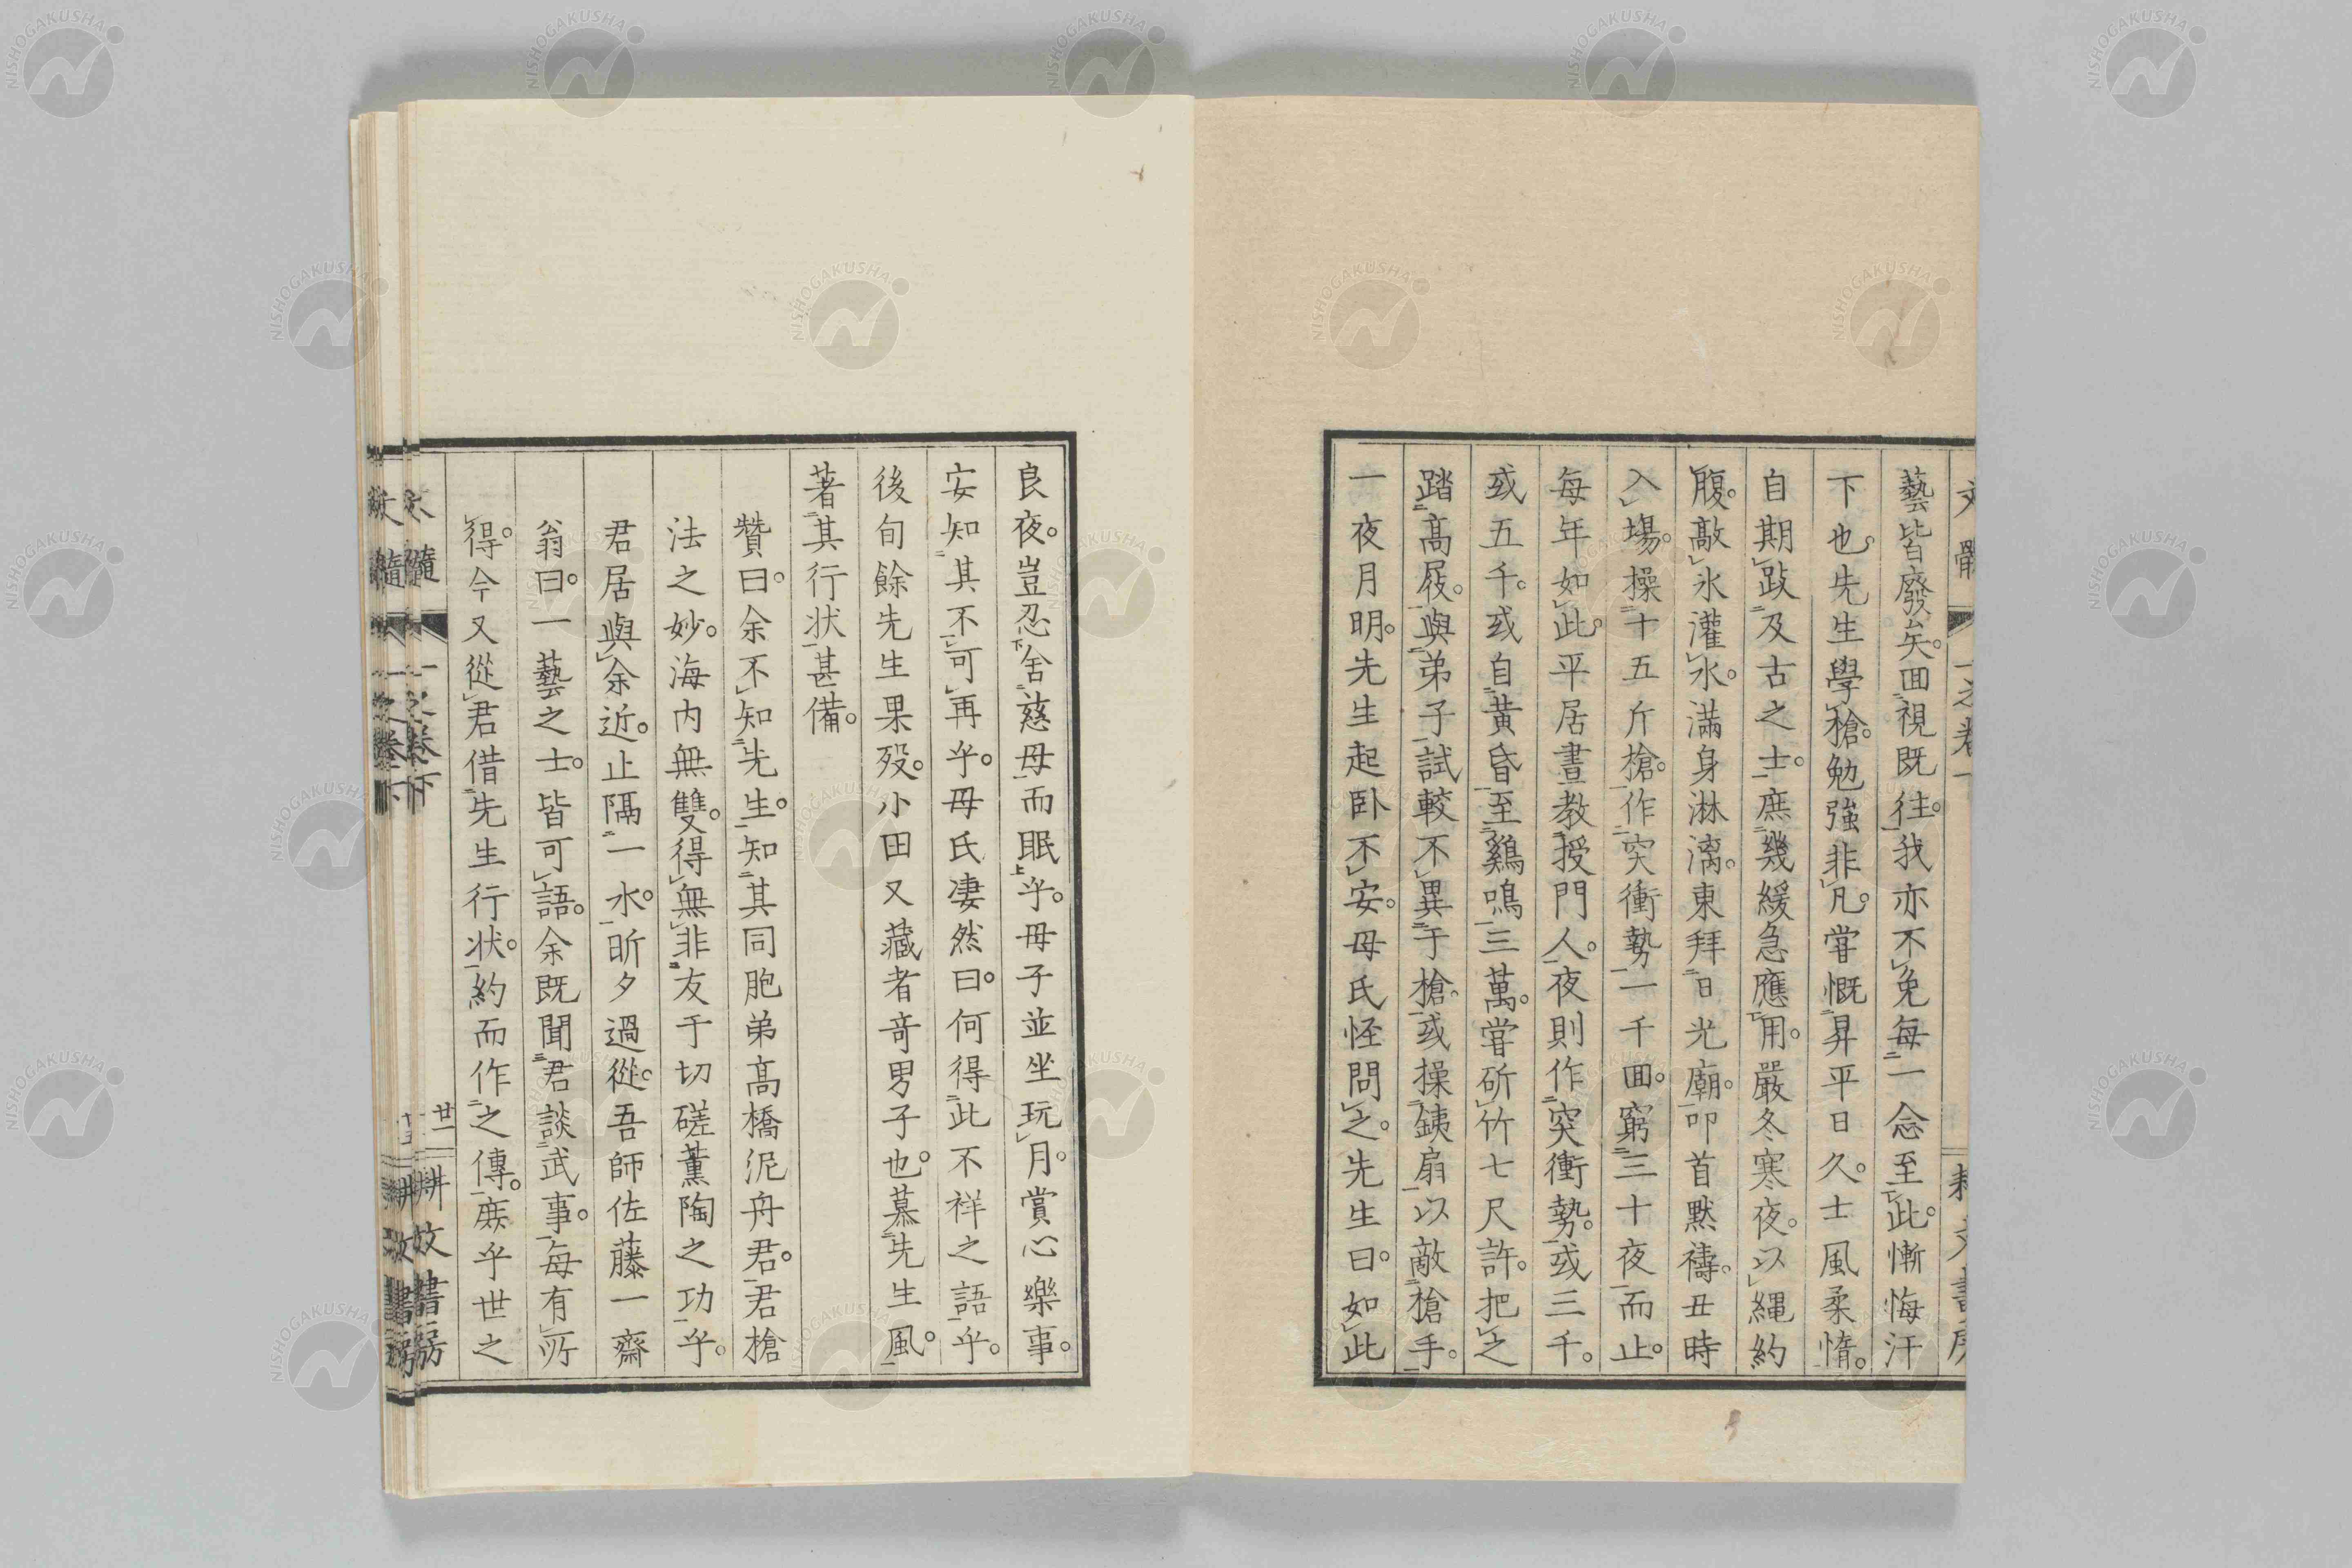 藝皆廢矣。回視既往。我亦不免每一念至此。慚悔汗
下也。先生學槍。勉強非凡。嘗慨昇平日久。士風柔惰。
自期跂及古之士。庶幾緩急應用。嚴冬寒夜。以縄約
腹。敲氷灌水。満身淋漓。東拜日光廟。叩首黙禱。丑時
入場。操十五斤槍。作突衝勢一千回。窮三十夜而止。
毎年如此。平居晝教授門人。夜則作突衝勢。或三千。
或五千。或自黃昏至鷄鳴三萬。嘗斫竹七尺許。把之
踏高屐。與弟子試較不異于槍。或操銕扇以敵槍手。
一夜月明。先生起卧不安。母氏怪問之。先生曰。如此
良夜。豈忍舍慈母而眠乎。母子並坐玩月。賞心樂事。
安知其不可再乎。母氏凄然曰。何得此不祥之語乎。
後旬餘先生果歿。小田又藏者奇男子也。慕先生風。
著其行状甚備。
賛曰。余不知先生。知其同胞弟高橋泥舟君。君槍
法之妙。海内無雙。得無非友于切磋薫陶之功乎。
君居與余近。止隔一水。昕夕過從。吾師佐藤一齋
翁曰。一藝之士。皆可語。余既聞君談武事。毎有所
得。今又從君借先生行状。約而作之傳。庶乎世之
文髓
一之卷下
廿一
耕文書房